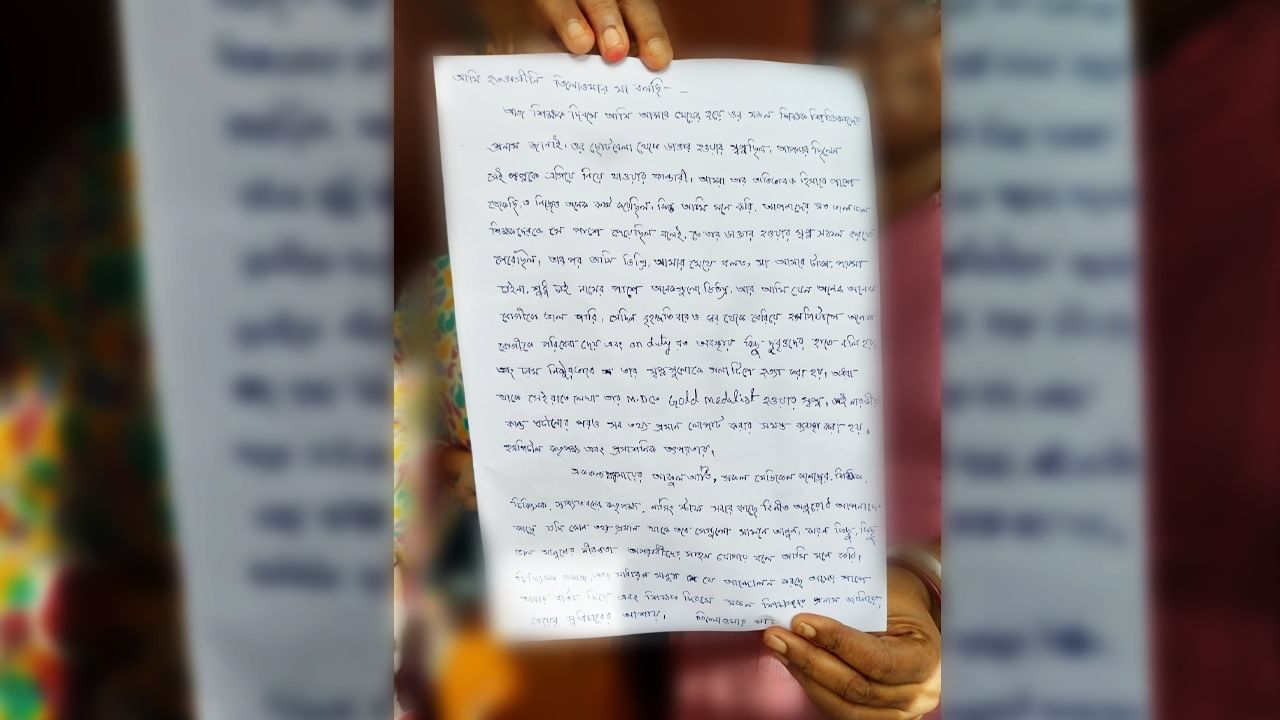 আমি হতভাগীনি তিলোত্তমার মা বলছি - -
আজ শিক্ষক দিবসে আমি আমার মেয়ের হয়ে ওর সকল শিক্ষক শিক্ষিকাদের
প্রনাম জানাই। ওর ছোটবেলা থেকে ডাক্তার হওয়ার স্বপ্ন ছিল, আপনারা ছিলেন
সেই স্বপ্নকে এগিয়ে নিয়ে যাওয়ার কান্ডারী। আমরা তার অভিভাবক হিসাবে পাশে
থেকেছি, ও নিজেও অনেক কষ্ট করেছিল, কিন্তু আমি মনে করি, আপনাদের মত ভাল ভাল
শিক্ষকদেরকে সে পাশে পেয়েছিল বলেই, তার ডাক্তার হওয়ার স্বপ্ন সফল করতে
পেরেছিল, তারপর আমি ভাবি, আমার মেয়ে বলত, মা আমার টাকা পয়সা
চাইনা, শুধু চাই নামের পাশে অনেকগুলো ডিগ্রী, আর আমি যেন অনেক অনেক
রোগীকে ভাল করি। সেদিন বৃহস্পতিবারও ঘর থেকে বেরিয়ে হসপিটালে অনেক
রোগীকে পরিষেবা দেয় এবং on duty রত অবস্থায় কিছু দুবৃত্তদের হাতে বলি হয়,
এবং চরম নিষ্ঠুরভাবে তার স্বপ্নগুলোকে গলা টিপে হত্যা করা হয়, অধরা
থাকে সেই রাতে লেখা তার M.D তে Gold medalist হওয়ার স্বপ্ন, এই নারকীয়
কান্ড ঘটানোর পরও সব তথ্য প্রমান লোপাট করার সমস্ত ব্যবস্থা করা হয়,
হসপিটাল কতৃপক্ষ এবং প্রশাসনিক তৎপরতায়।
আকুল আর্তি, সকল মেডিকেল কলেজের, শিক্ষক,
চিকিৎসক, স্বাস্থ্যভবনের কতৃপক্ষ, নার্সিং স্টাফ সবার কাছে বিনীত অনুরোধ আপনাদের
কাছে যদি কোন তথ্য প্রমান থাকে তবে সেগুলো সামনে আনুন, কারন কিছু, কিছু
ভাল মানুষের নীরবতা অপরাধীদের সাহস যোগায় বলে আমি মনে করি।
চিকিৎসক সমাজ, এবং সাধারন মানুষ যে আন্দোলন করছে তাদের পাশে
থাকার বার্তা দিয়ে এবং শিক্ষক দিবসে সকল শিক্ষককে প্রনাম জানিয়ে,
মেয়ের সুবিচারের আশায়। তিলোত্তমার মা।